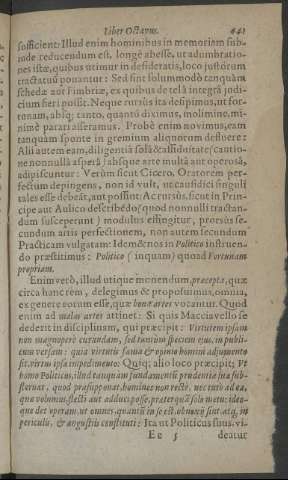 Liber Octavus. 641
sufficient: Illud enim hominibus in memoriam sub-
inde reducendum est, longè abesse, ut adumbratio-
nes istæ, quibus utimur in desideratis, loco justorum
tractatuũ ponantur: Sed sint solummodò tanquàm
schedæ aut Fimbriæ, ex quibus de telâ integrâ judi-
cium fieri possit. Neque rursùs ita desipimus, ut for-
tunam, absq; tanto, quantò diximus, molimine, mi-
nimè parari asseramus. Probè enim novimus, eam
tanquàm sponte in gremium aliquorum defluere:
Alii autem eam, diligentiâ solâ & assiduitate (cautio-
ne nonnullâ aspersâ) absque arte multâ aut operosâ,
adipiscuntur: Verùm sicut Cicero, Oratorem per-
fectum depingens, non id vult, ut causidici singuli
tales esse debeãt, aut possint; Ac rursùs, sicut in Prin-
cipe aut Aulico describẽdo (quod nonnulli tractan-
dum susceperunt) modulus effingitur, prorsùs se-
cundum artis perfectionem, non autem secundum
Practicam vulgatam: Idem & nos in Politico instruen-
do præstitimus: Politico (inquam) quoad Fortunam
propriam.
Enimverò, illud utique monendum, præcepta, quæ
circa hanc rem, delegimus & proposuimus, omnia,
ex genere eorum esse, quæ bonæ artes vocantur. Quod
enim ad malas artes attinet: Si quis Macciavello se
dederit in disciplinam, qui præcipit: Virtutem ipsam
non magnoperè curandam, sed tantùm speciem ejus, in publi-
cum versam: quia virtutis fama & opinio homini adjumento
sit, virtus ipsa impedimento: Quiq; alio loco præcipit; Ut
homo Politicus, illud tanquàm fundamentũ prudentiæ suæ sub-
sternat, quod præsupponat, homines non rectè, nec tutò ad ea,
quæ volumus, flecti aut adduci posse, præterquã solo metu: ideo-
que det operam, ut omnes, quantũ in se est, obnoxii sint, atq, in
periculis, & angustiis constituti: Ita ut Politicus suus, vi-
Ee 5 deatur